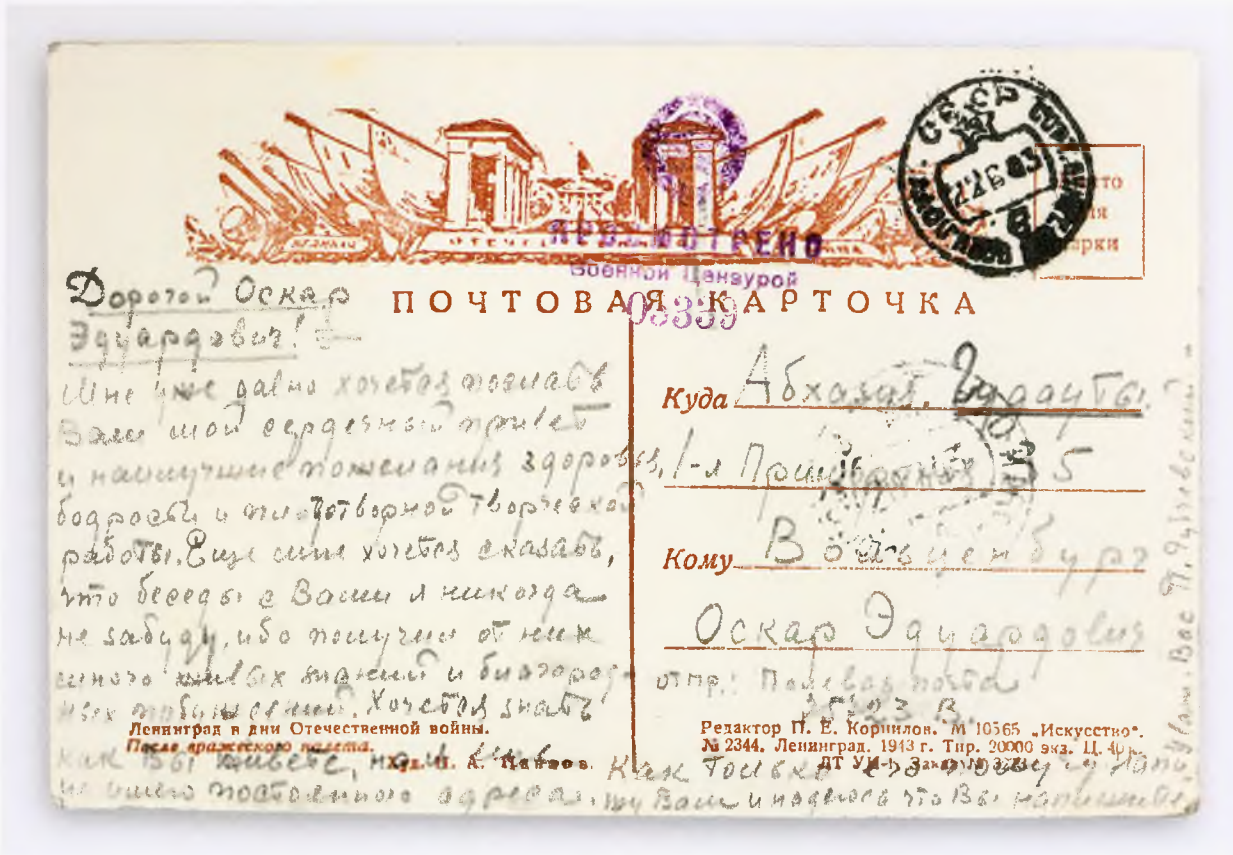 ВЕЛИКАЯ ОТЕЧЕ
ПРОСМОТРЕНО
Военной Цензурой
03339
СССР
ПОЧТОВАЯ КАРТОЧКА
Дорогой Оскар
Эдуардович!
Мне уже давно хочется послать
Вам мой сердечный привет
и наилучшие пожелания здоровья,
бодрости и плодотворной творческой
работы. Еще мне хочется сказать,
что беседы с Вами я никогда
не забуду, ибо получил от них
много живых знаний и благород-
ных побуждений. Хочется знать
как Вы живете,
не имею постоянного адреса.
Как только его
жу Вам и надеюсь что Вы напишите.
Увaж. Вас П.
Куда Абхазия. Гудауты.
1-я Приморная 5
Кому Вольценбург
Оскар Эдуардович
отпр.: Полевая почта
23 В.
Ленинград в дни Отечественной войны.
После вражеского налета.
Худ. А.
Редактор П. Е. Корнилов. М 10565 „Искусство".
№ 2344. Ленинград. 1943 г. Тир. 20000 экз. Ц. 40 к.